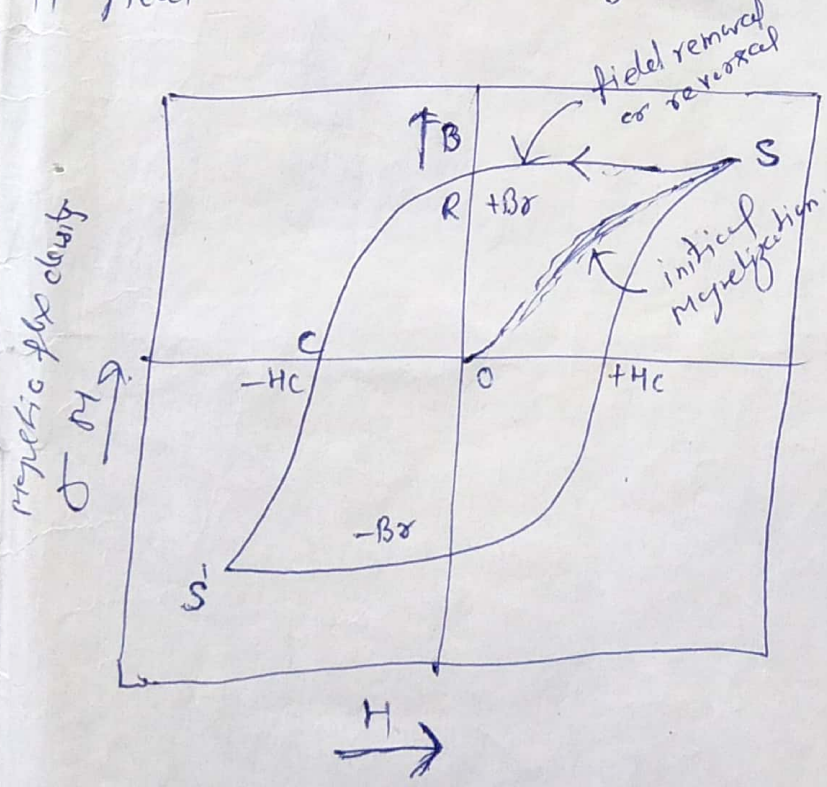 field removal
or reversal
B
S
R
+Br
initial
Magnetization
Magnetic flux density
or M
C
-Hc
O
+Hc
-Br
S'
H